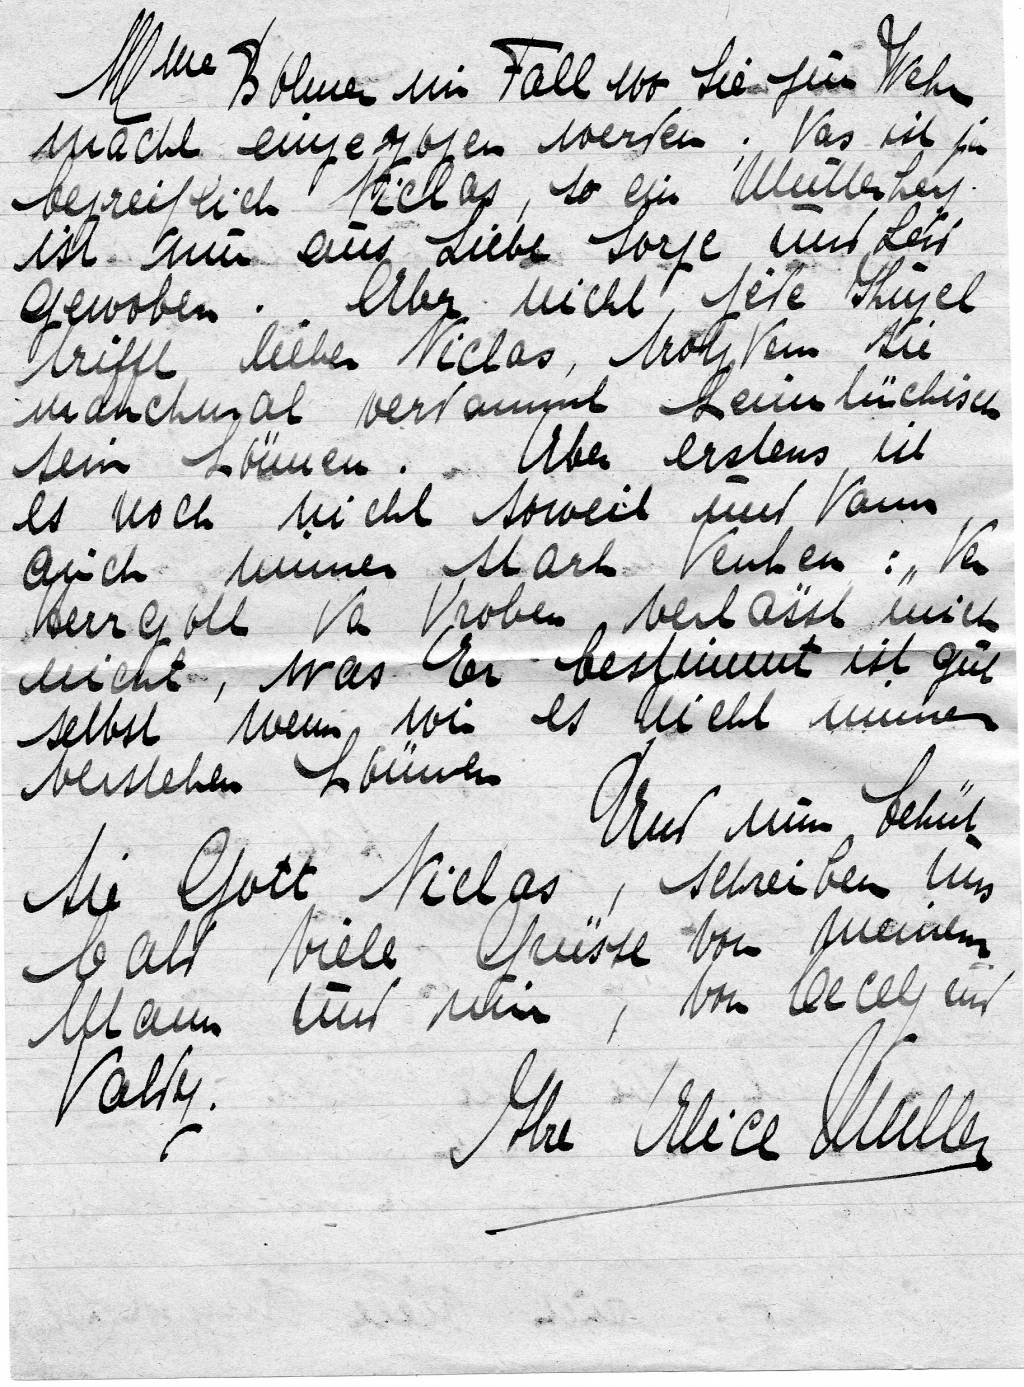 Mme Bohmer im Fall wo Sie zur Wehr
macht eingezogen werden. Das ist ja
begreiflich Niclas, so ein Mutterherz
ist nur aus Liebe Sorge und Leid
gewoben. Aber nicht jede Kugel
trifft lieber Niclas, trotzdem sie
manchmal verdammt heimtückisch
sein können. Aber erstens ist
es noch nicht soweit und dann
auch immer stark denken: „Der
Herrgott da droben verlässt mich
nicht, was Er bestimmt ist gut
selbst wenn wir es nicht immer
verstehen können
Und nun behüt
Sie Gott Niclas, schreiben uns
bald viele Grüsse von meinem
Mann und mir, von Cecey und
Valdy.
Ihre Alice Muller